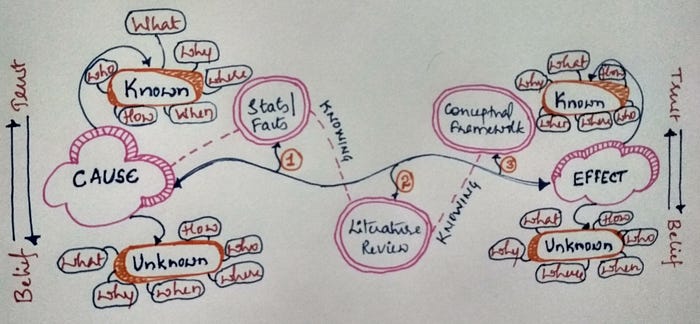 What
Why
Who
Where
Known
How
When
Trust
Belief
CAUSE
Stats/
Facts
KNOWING
1
How
What
Who
Unknown
Where
Why
When
2
Literature
Review
KNOWING
Conceptual
Framework
3
What
How
Why
Known
When
Where
Who
Trust
Belief
EFFECT
What
How
Who
Why
Unknown
Where
When